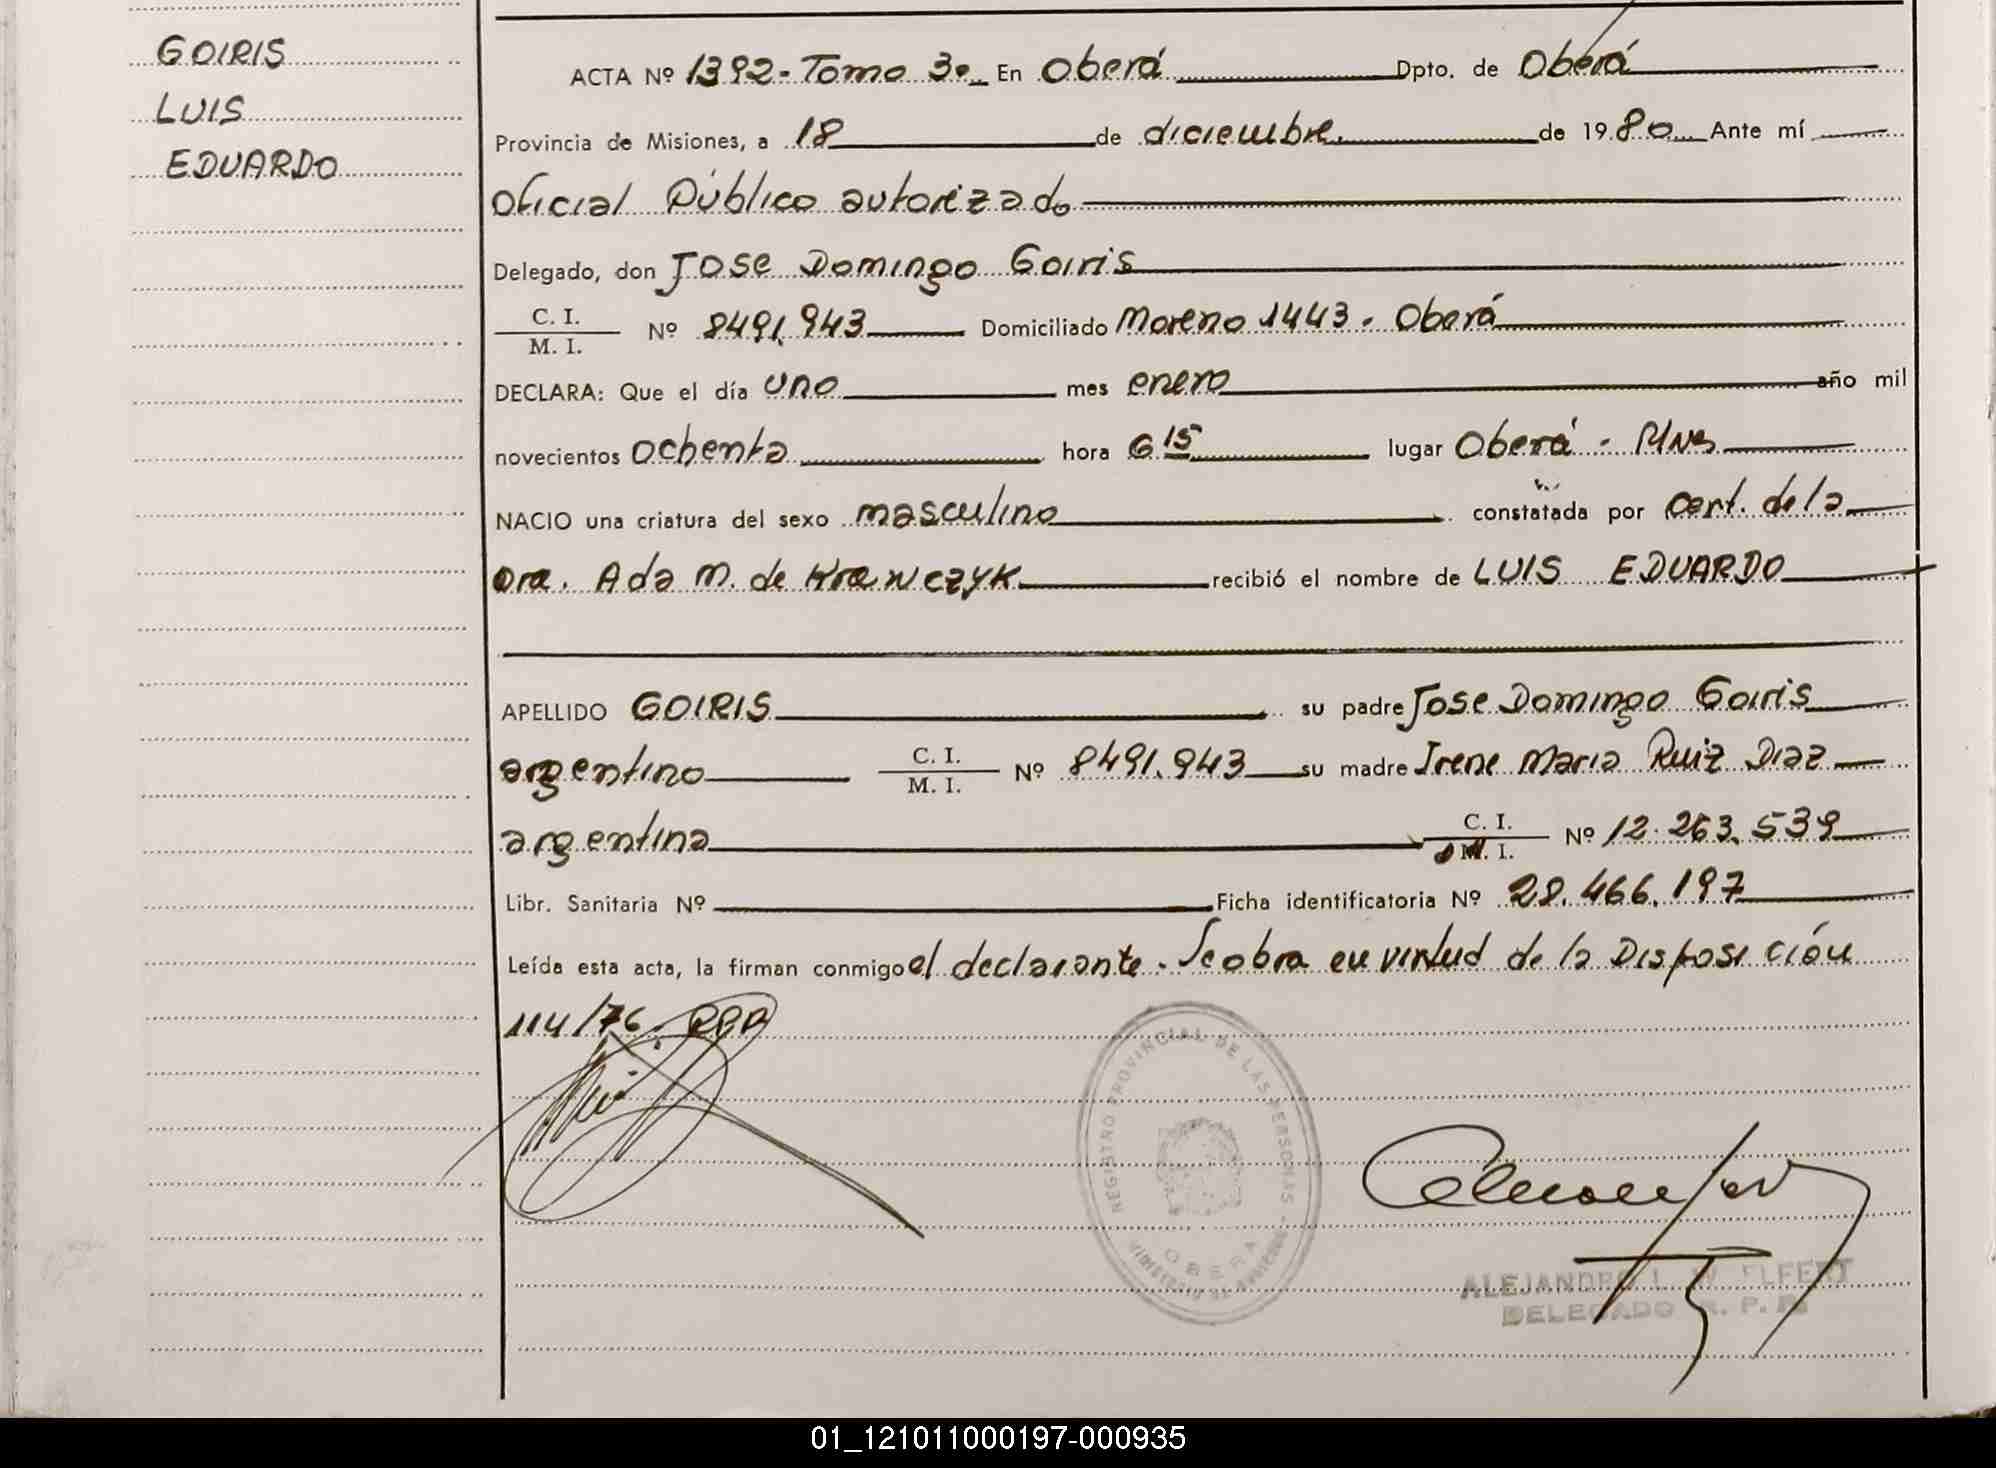 GOIRIS
LUIS
EDUARDO
ACTA Nº 1392-Tomo 3º En Oberá Dpto. de Oberá
Provincia de Misiones, a 18 de diciembre de 1980 Ante mí
Oficial Público autorizado
Delegado, don Jose Domingo Goiris
C. I. / M. I. Nº 8491.943 Domiciliado Moreno 1443. Oberá
DECLARA: Que el día uno mes enero año mil
novecientos ochenta hora 6 15 lugar Oberá - Mns
NACIO una criatura del sexo masculino constatada por cert. de la
Dra. Ada M. de Krawczyk recibió el nombre de LUIS EDUARDO
APELLIDO GOIRIS su padre Jose Domingo Goiris
argentino C. I. / M. I. Nº 8491.943 su madre Irene Maria Ruiz Diaz
argentina C. I. / M. I. Nº 12.263.539
Libr. Sanitaria Nº Ficha identificatoria Nº 28.466.197
Leída esta acta, la firman conmigo el declarante. Se obra en virtud de la Disposición
114/76.
REGISTRO PROVINCIAL DE LAS PERSONAS
OBERA
ALEJANDRO L. W. ELFERT
DELEGADO R. P. P.
01_121011000197-000935